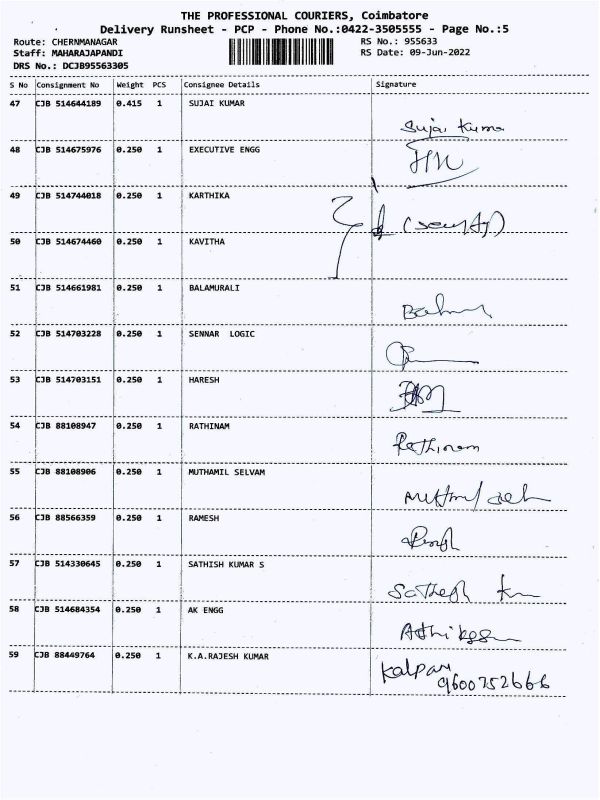 THE PROFESSIONAL COURIERS, Coimbatore
Delivery Runsheet - PCP - Phone No.:0422-3505555 - Page No.:5
Route: CHERNMANAGAR RS No.: 955633
Staff: MAHARAJAPANDI RS Date: 09-Jun-2022
DRS No.: DCJB95563305
S No Consignment No Weight PCS Consignee Details Signature
47 CJB 514644189 0.415 1 SUJAI KUMAR Sujai Kumar
48 CJB 514675976 0.250 1 EXECUTIVE ENGG
49 CJB 514744018 0.250 1 KARTHIKA
50 CJB 514674460 0.250 1 KAVITHA
51 CJB 514661981 0.250 1 BALAMURALI
52 CJB 514703228 0.250 1 SENNAR LOGIC
53 CJB 514703151 0.250 1 HARESH
54 CJB 88108947 0.250 1 RATHINAM Rathinam
55 CJB 88108906 0.250 1 MUTHAMIL SELVAM
56 CJB 88566359 0.250 1 RAMESH
57 CJB 514330645 0.250 1 SATHISH KUMAR S
58 CJB 514684354 0.250 1 AK ENGG
59 CJB 88449764 0.250 1 K.A.RAJESH KUMAR
9600752666